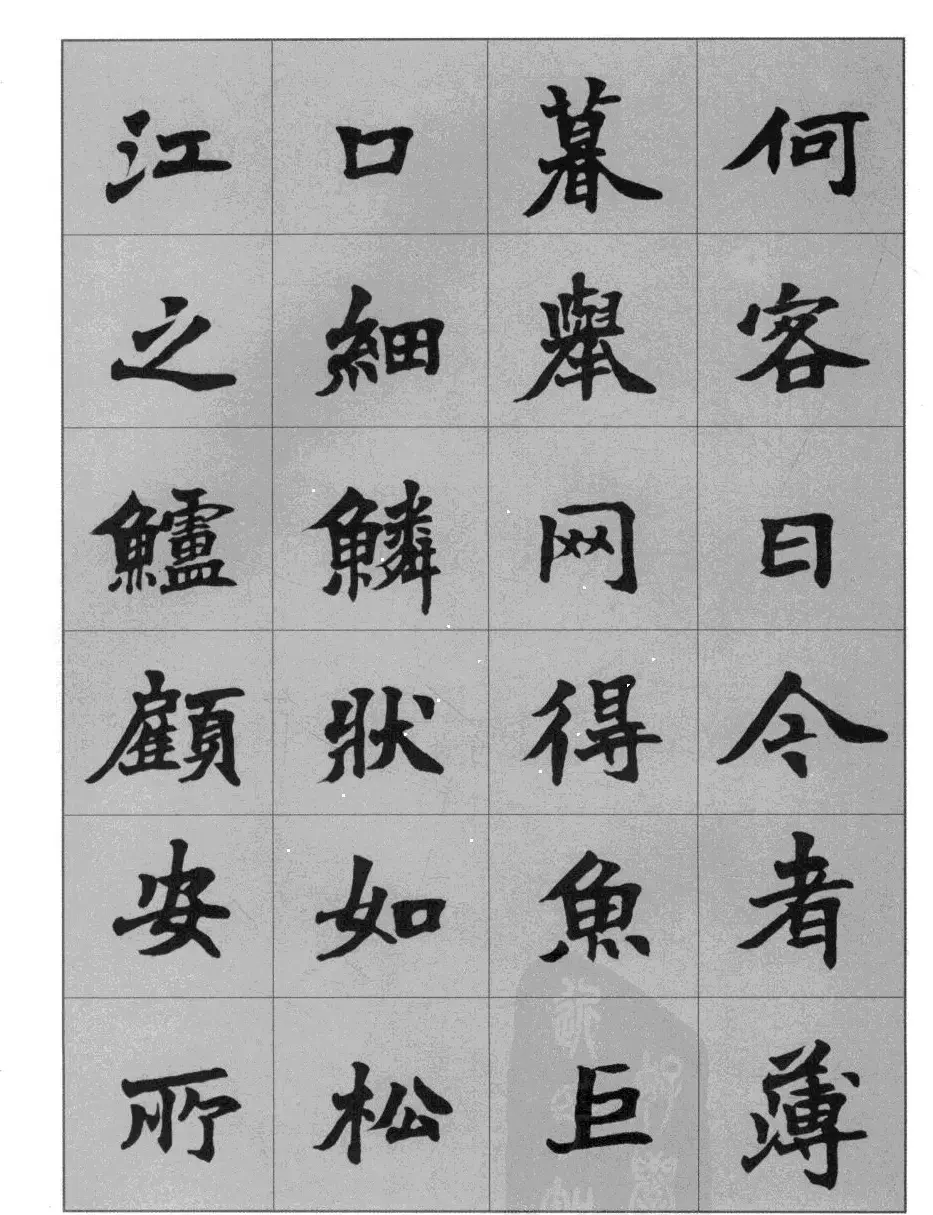 何客曰今者薄
暮舉网得魚巨
口細鱗狀如松
江之鱸顧安所